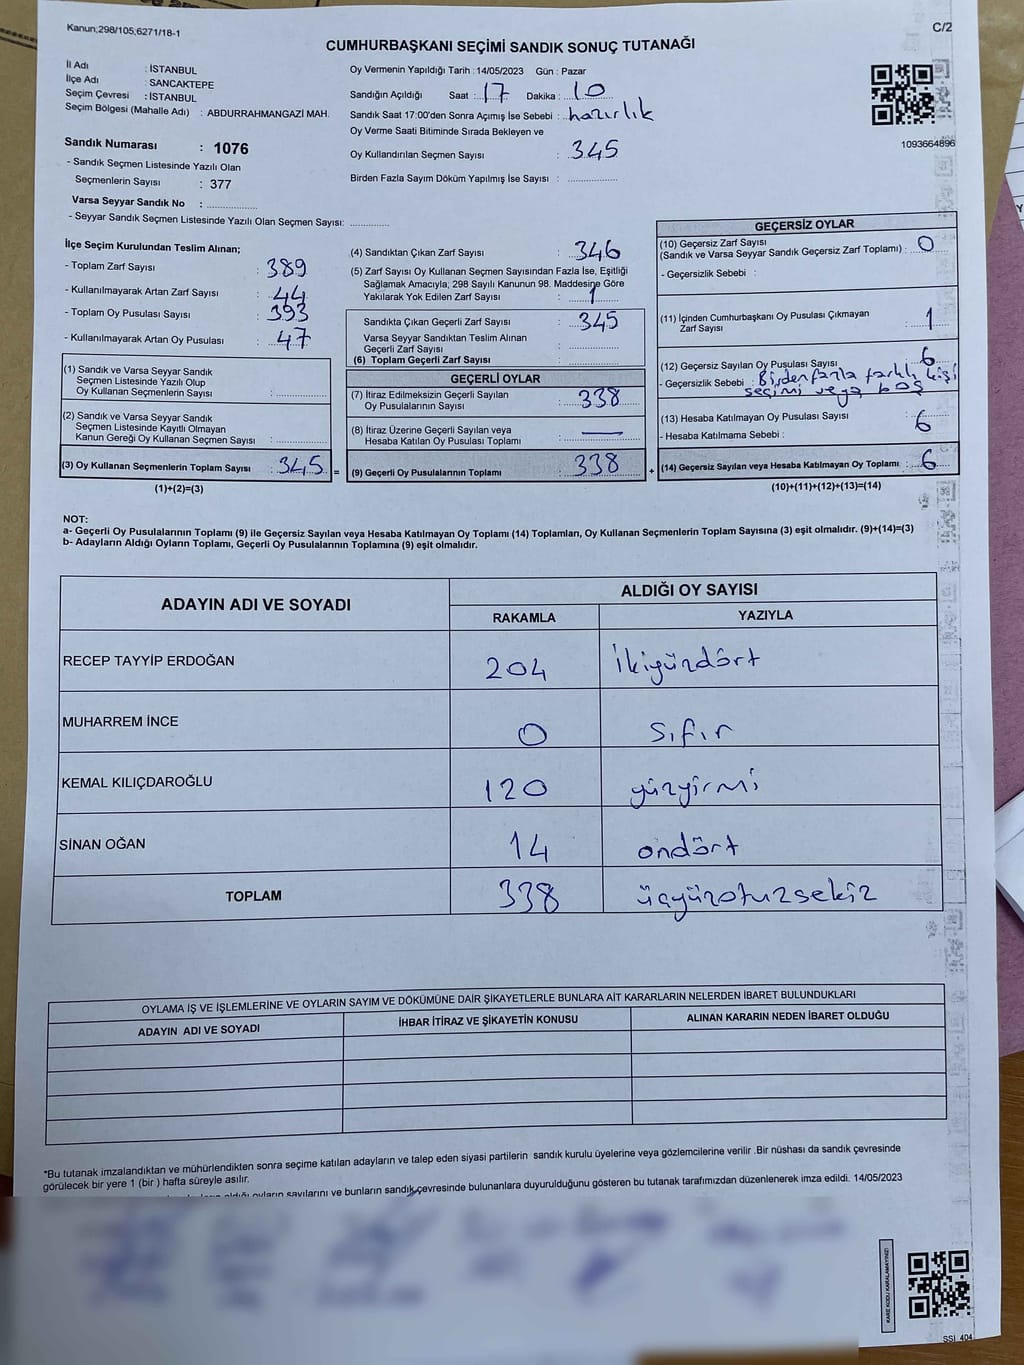 Kanun;298/105,6271/18-1
C/2
CUMHURBAŞKANI SEÇİMİ SANDIK SONUÇ TUTANAĞI
İl Adı : İSTANBUL
İlçe Adı : SANCAKTEPE
Seçim Çevresi : İSTANBUL
Seçim Bölgesi (Mahalle Adı) : ABDURRAHMANGAZİ MAH.
Oy Vermenin Yapıldığı Tarih : 14/05/2023 Gün : Pazar
Sandığın Açıldığı Saat : 17 Dakika : 10
Sandık Saat 17:00'den Sonra Açımış İse Sebebi : hazırlık
Oy Verme Saati Bitiminde Sırada Bekleyen ve
Oy Kullandırılan Seçmen Sayısı : 345
Birden Fazla Sayım Döküm Yapılmış İse Sayısı :
1093664896
Sandık Numarası : 1076
- Sandık Seçmen Listesinde Yazılı Olan
Seçmenlerin Sayısı : 377
Varsa Seyyar Sandık No :
- Seyyar Sandık Seçmen Listesinde Yazılı Olan Seçmen Sayısı:
İlçe Seçim Kurulundan Teslim Alınan;
- Toplam Zarf Sayısı : 389
- Kullanılmayarak Artan Zarf Sayısı : 44
- Toplam Oy Pusulası Sayısı : 393
- Kullanılmayarak Artan Oy Pusulası : 47
(1) Sandık ve Varsa Seyyar Sandık
Seçmen Listesinde Yazılı Olup
Oy Kullanan Seçmenlerin Sayısı :
(2) Sandık ve Varsa Seyyar Sandık
Seçmen Listesinde Kayıtlı Olmayan
Kanun Gereği Oy Kullanan Seçmen Sayısı :
(3) Oy Kullanan Seçmenlerin Toplam Sayısı : 345 =
(1)+(2)=(3)
(4) Sandıktan Çıkan Zarf Sayısı : 346
(5) Zarf Sayısı Oy Kullanan Seçmen Sayısından Fazla İse, Eşitliği
Sağlamak Amacıyla, 298 Sayılı Kanunun 98. Maddesine Göre
Yakılarak Yok Edilen Zarf Sayısı : 1
Sandıkta Çıkan Geçerli Zarf Sayısı : 345
Varsa Seyyar Sandıktan Teslim Alınan
Geçerli Zarf Sayısı :
(6) Toplam Geçerli Zarf Sayısı :
GEÇERLİ OYLAR
(7) İtiraz Edilmeksizin Geçerli Sayılan
Oy Pusulalarının Sayısı : 338
(8) İtiraz Üzerine Geçerli Sayılan veya
Hesaba Katılan Oy Pusulası Toplamı : —
(9) Geçerli Oy Pusulalarının Toplamı : 338 +
GEÇERSİZ OYLAR
(10) Geçersiz Zarf Sayısı
(Sandık ve Varsa Seyyar Sandık Geçersiz Zarf Toplamı) : 0
- Geçersizlik Sebebi :
(11) İçinden Cumhurbaşkanı Oy Pusulası Çıkmayan
Zarf Sayısı : 1
(12) Geçersiz Sayılan Oy Pusulası Sayısı : 6
- Geçersizlik Sebebi : Birden fazla farklı kişi
seçimi veya boş
(13) Hesaba Katılmayan Oy Pusulası Sayısı : 6
- Hesaba Katılmama Sebebi :
(14) Geçersiz Sayılan veya Hesaba Katılmayan Oy Toplamı : 6
(10)+(11)+(12)+(13)=(14)
NOT:
a- Geçerli Oy Pusulalarının Toplamı (9) ile Geçersiz Sayılan veya Hesaba Katılmayan Oy Toplamı (14) Toplamları, Oy Kullanan Seçmenlerin Toplam Sayısına (3) eşit olmalıdır. (9)+(14)=(3)
b- Adayların Aldığı Oyların Toplamı, Geçerli Oy Pusulalarının Toplamına (9) eşit olmalıdır.
ADAYIN ADI VE SOYADI
ALDIĞI OY SAYISI
RAKAMLA YAZIYLA
RECEP TAYYİP ERDOĞAN 204 ikiyüzdört
MUHARREM İNCE 0 sıfır
KEMAL KILIÇDAROĞLU 120 yüzyirmi
SİNAN OĞAN 14 ondört
TOPLAM 338 üçyüzotuzsekiz
OYLAMA İŞ VE İŞLEMLERİNE VE OYLARIN SAYIM VE DÖKÜMÜNE DAİR ŞİKAYETLERLE BUNLARA AİT KARARLARIN NELERDEN İBARET BULUNDUKLARI
ADAYIN ADI VE SOYADI İHBAR İTİRAZ VE ŞİKAYETİN KONUSU ALINAN KARARIN NEDEN İBARET OLDUĞU
*Bu tutanak imzalandıktan ve mühürlendikten sonra seçime katılan adayların ve talep eden siyasi partilerin sandık kurulu üyelerine veya gözlemcilerine verilir .Bir nüshası da sandık çevresinde
görülecek bir yere 1 (bir ) hafta süreyle asılır.
oyların sayılarını ve bunların sandık çevresinde bulunanlara duyurulduğunu gösteren bu tutanak tarafımızdan düzenlenerek imza edildi. 14/05/2023
KARE KODU KARALAMAYINIZ!
SSİ 404